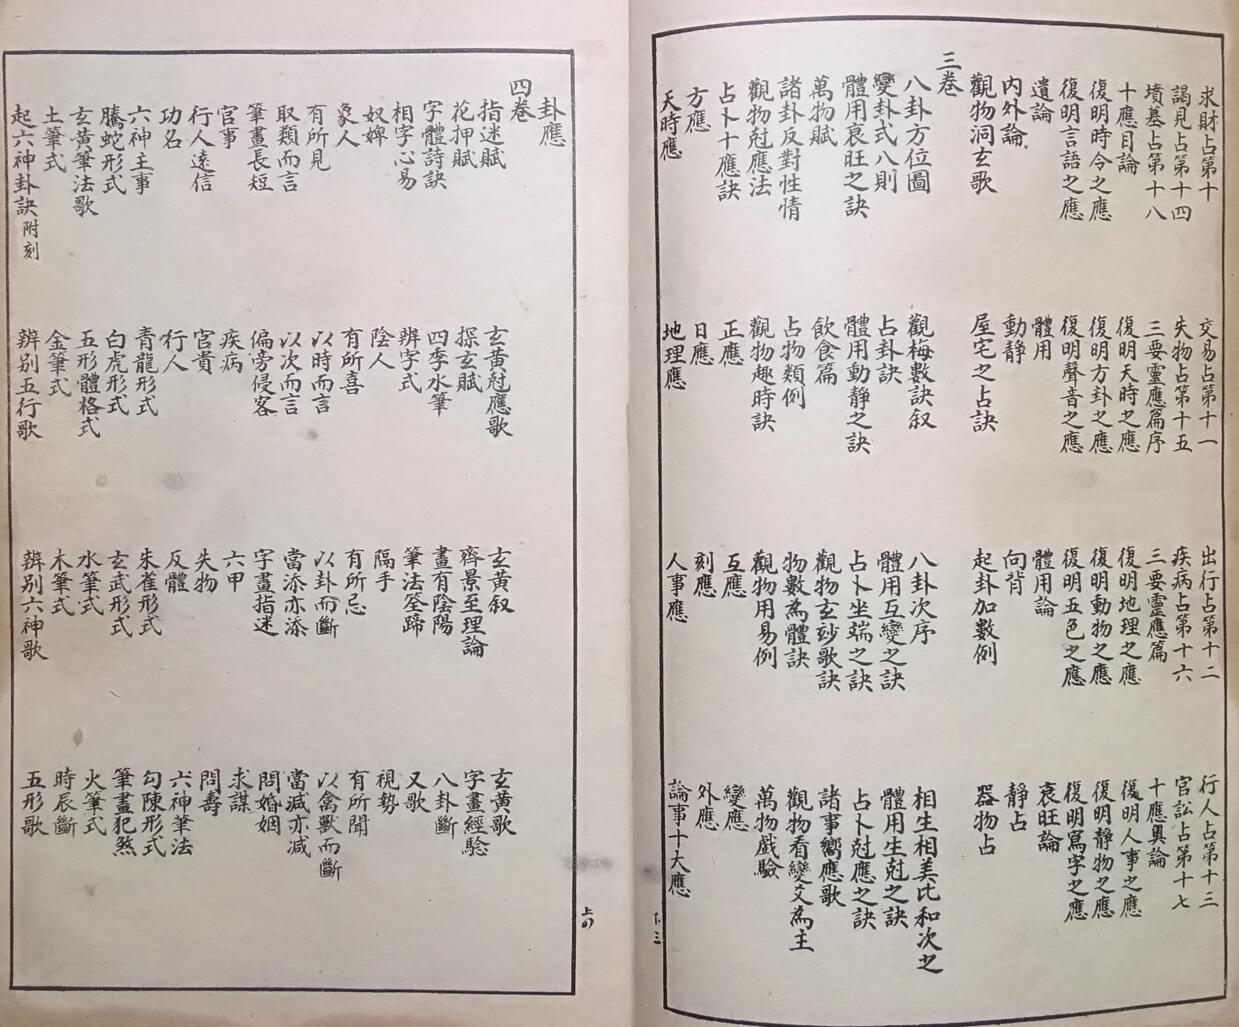 求財占第十 交易占第十一 出行占第十二 行人占第十三
謁見占第十四 失物占第十五 疾病占第十六 官訟占第十七
墳墓占第十八 三要靈應篇序 三要靈應篇 十應奧論
十應目論 復明天時之應 復明地理之應 復明人事之應
復明時令之應 復明方卦之應 復明動物之應 復明靜物之應
復明言語之應 復明聲音之應 復明五色之應 復明寫字之應
遺論 體用 體用論 衰旺論
内外論 動靜 向背 靜占
觀物洞玄歌 屋宅之占訣 起卦加數例 器物占
三卷
八卦方位圖 觀梅數訣叙 八卦次序 相生相美比和次之
變卦式八則 占卦訣 體用互變之訣 體用生尅之訣
體用衰旺之訣 體用動靜之訣 占卜坐端之訣 占卜尅應之訣
萬物賦 飲食篇 觀物玄玅歌訣 諸事嚮應歌
諸卦反對性情 占物類例 物數為體訣 觀物看變爻為主
觀物尅應法 觀物趣時訣 觀物用易例 萬物戲驗
占卜十應訣 正應 互應 變應
方應 日應 刻應 外應
天時應 地理應 人事應 論事十大應
卦應
四卷
指迷賦 玄黃尅應歌 玄黃叙 玄黃歌
花押賦 探玄賦 齊景至理論 字畫經驗
字體詩訣 四季水筆 畫有陰陽 八卦斷
相字心易 辨字式 筆法筌蹄 又歌
奴婢 陰人 隔手 視勢
象人 有所喜 有所忌 有所聞
有所見 以時而言 以卦而斷 以禽獸而斷
取類而言 以次而言 當添亦添 當減亦減
筆畫長短 偏旁侵客 字畫指迷 問婚姻
官事 疾病 六甲 求謀
行人遠信 官貴 失物 問壽
功名 行人 反體 六神筆法
六神主事 青龍形式 朱雀形式 勾陳形式
騰蛇形式 白虎形式 玄武形式 筆畫犯煞
玄黃筆法歌 五形體格式 水筆式 火筆式
土筆式 金筆式 木筆式 時辰斷
起六神卦訣 附刻 辨别五行歌 辨别六神歌 五形歌